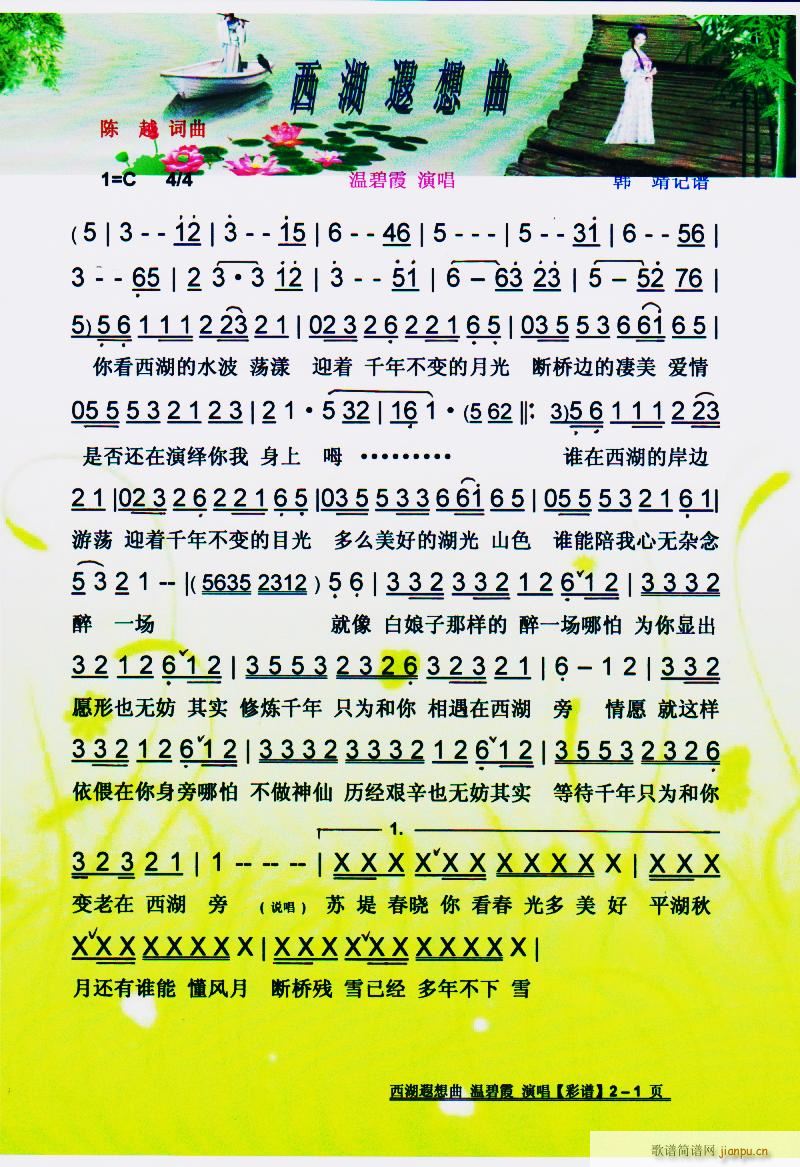 西湖遐想曲
陈 越 词曲
1=C 4/4 温碧霞 演唱 韩 靖记谱
(5 | 3 - - 12 | 3 - - 15 | 6 - - 46 | 5 - - - | 5 - - 31 | 6 - - 56 |
3 - - 65 | 2 3 · 3 12 | 3 - - 51 | 6 - 63 23 | 5 - 52 76 |
5) 5 6 1 1 1 2 23 2 1 | 02 3 2 6 2 2 1 6 5 | 03 5 5 3 6 61 6 5 |
你看西湖的水波 荡漾 迎着 千年不变的月光 断桥边的凄美 爱情
05 5 5 3 2 1 2 3 | 2 1 · 5 32 | 16 1 · (5 62 ‖: 3) 5 6 1 1 1 2 23
是否还在演绎你我 身上 呣 ········· 谁在西湖的岸边
2 1 | 02 3 2 6 2 2 1 6 5 | 03 5 5 3 3 6 61 6 5 | 05 5 5 3 2 1 6 1 |
游荡 迎着千年不变的目光 多么美好的湖光 山色 谁能陪我心无杂念
5 3 2 1 - - | (5635 2312 ) 5 6 | 3 3 2 3 3 2 1 2 6 ˇ 1 2 | 3 3 3 2
醉 一场 就像 白娘子那样的 醉一场哪怕 为你显出
3 2 1 2 6 ˇ 1 2 | 3 5 5 3 2 3 2 6 3 2 3 2 1 | 6 - 1 2 | 3 3 2
愿形也无妨 其实 修炼千年 只为和你 相遇在西湖 旁 情愿 就这样
3 3 2 1 2 6 ˇ 1 2 | 3 3 3 2 3 3 3 2 1 2 6 ˇ 1 2 | 3 5 5 3 2 3 2 6
依偎在你身旁哪怕 不做神仙 历经艰辛也无妨其实 等待千年只为和你
1.
3 2 3 2 1 | 1 -- -- -- | X X X X ˇ X X X X X X X | X X X
变老在 西湖 旁 (说唱) 苏 堤 春晓 你 看春 光多 美 好 平湖秋
X ˇ X X X X X X X | X X X X ˇ X X X X X X |
月还有谁能 懂风月 断桥残 雪已经 多年不下 雪
西湖遐想曲 温碧霞 演唱【彩谱】2－1 页
歌谱简谱网 jianpu.cn